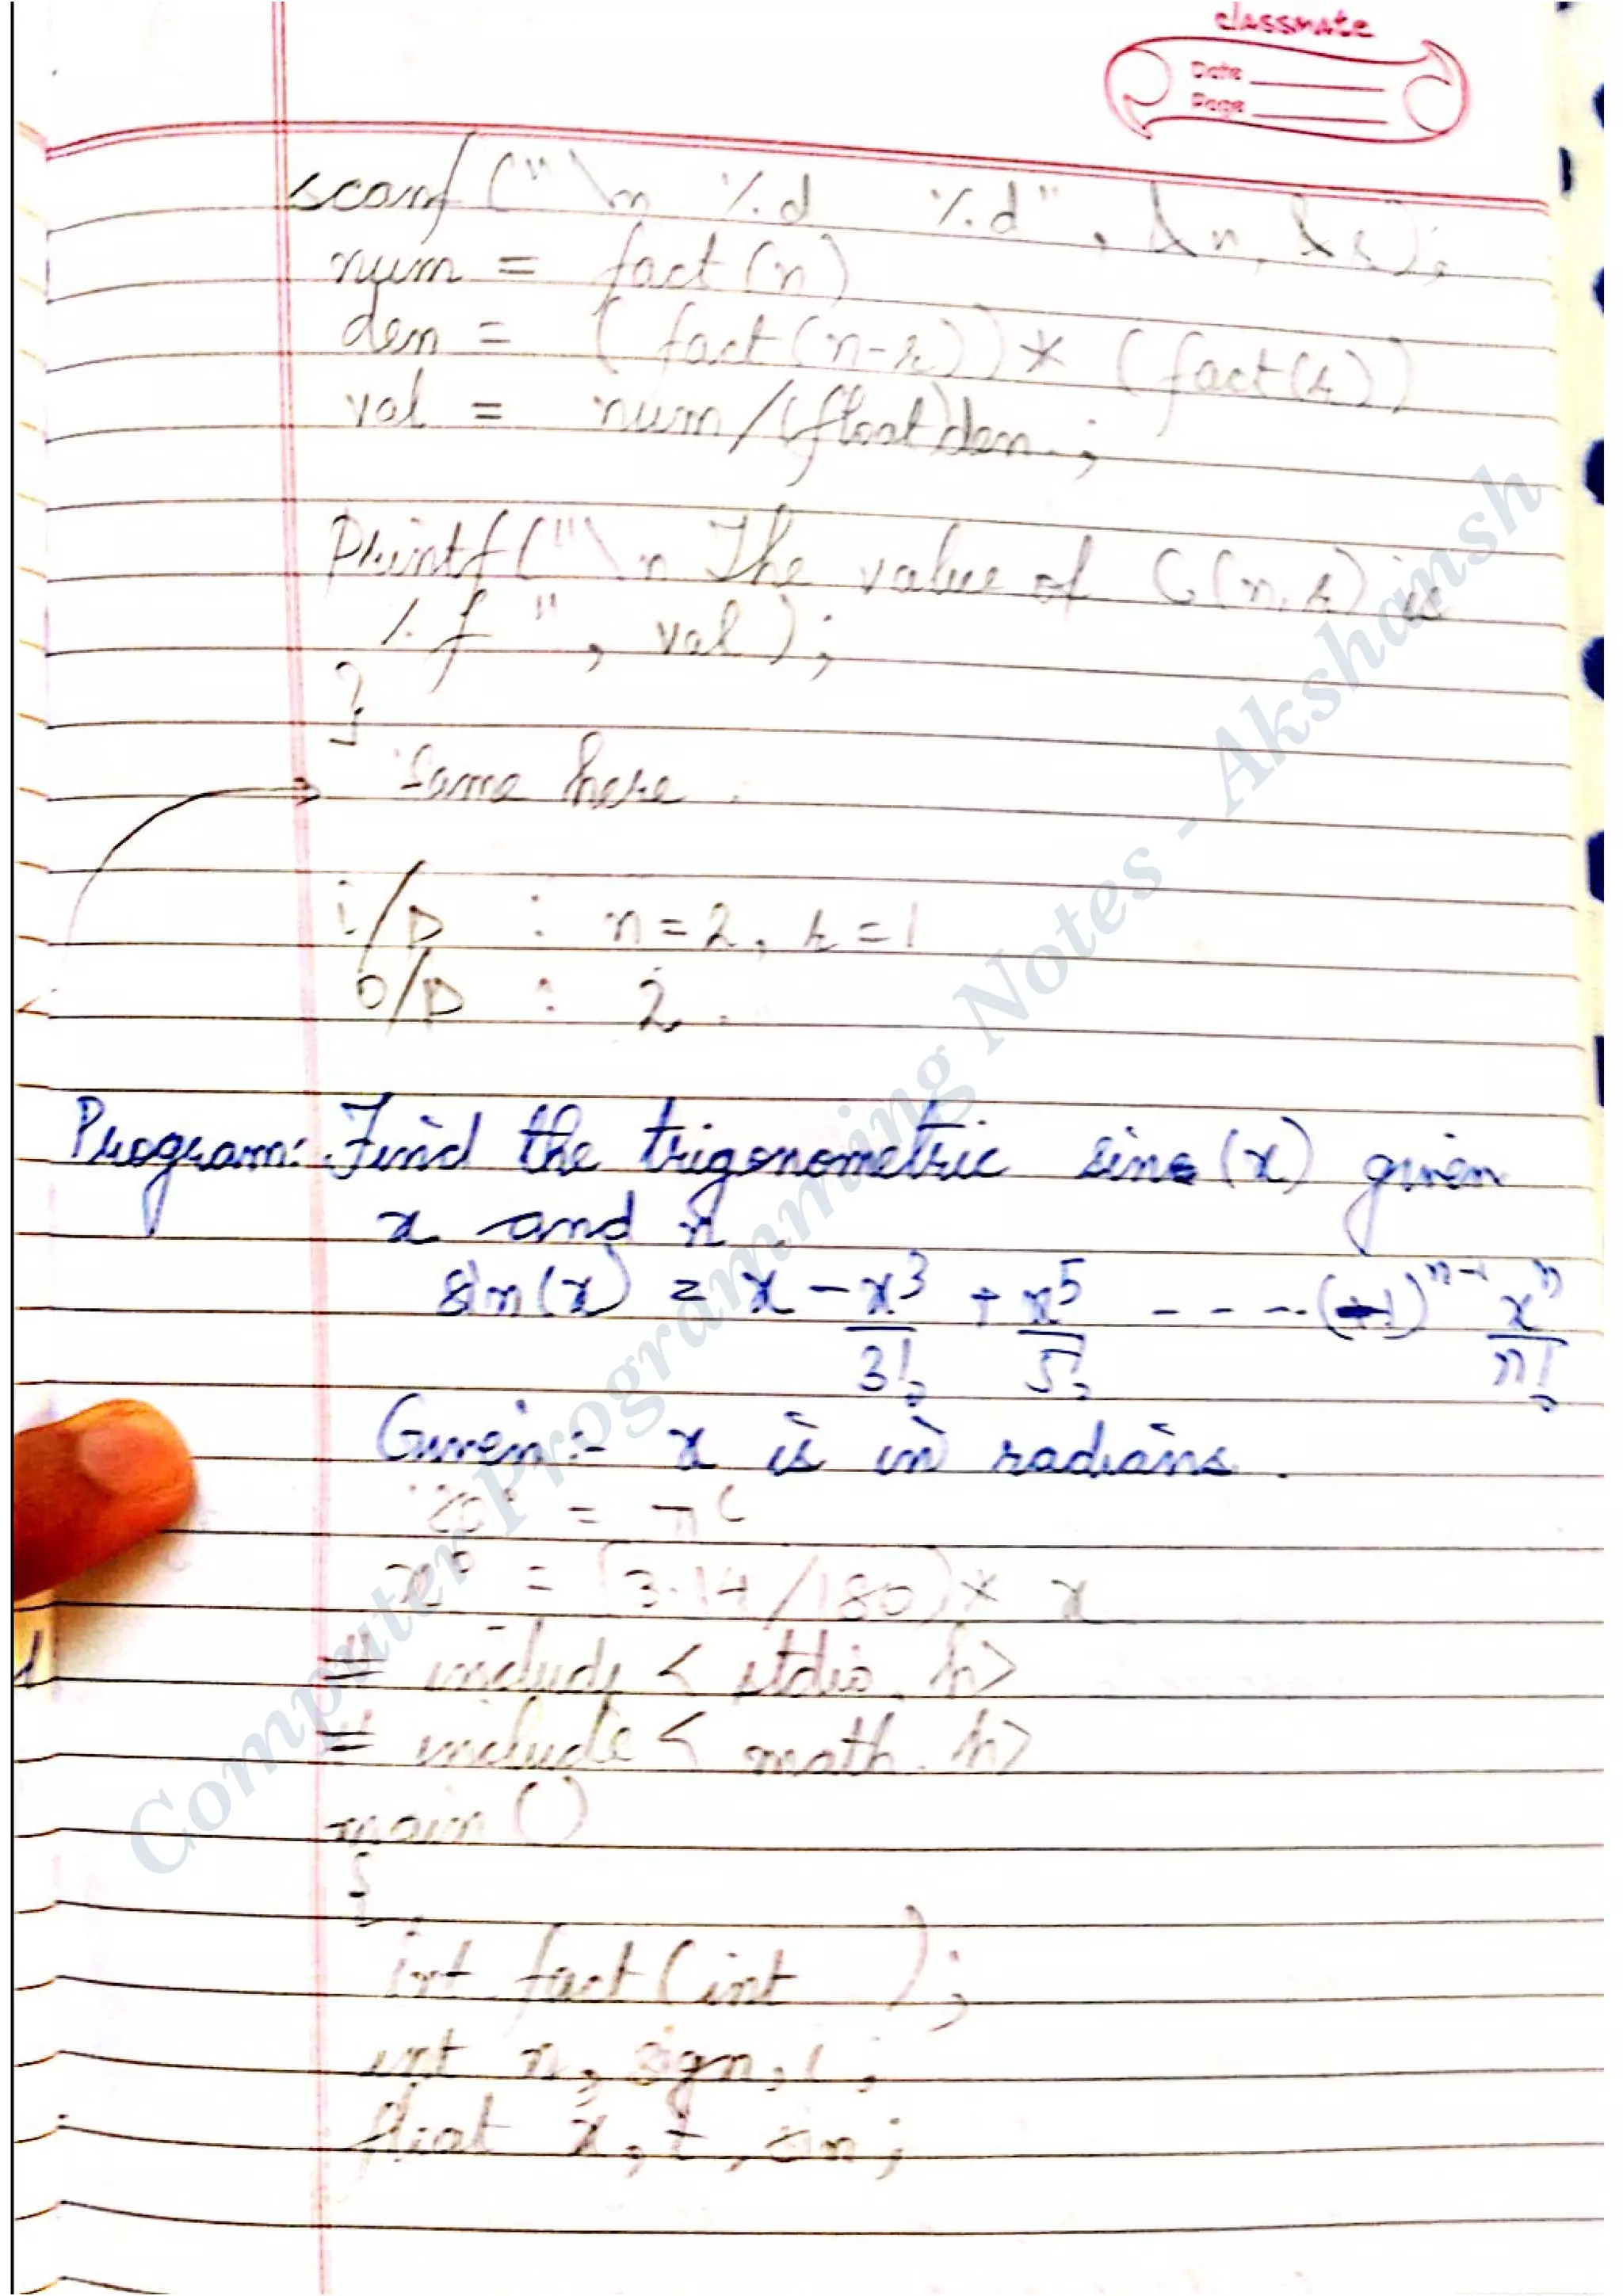 classmate
Date
Page
scanf("\n %d %d", &n, &r);
num = fact(n)
den = (fact(n-r)) * (fact(r))
val = num/(float)den.;
Printf("\n The value of C(n,r) is
%f", val);
}
Same here.
i/p : n=2, r=1
o/p : 2.
Program: Find the trigonometric sin(x) given
x and n.
sin(x) = x - x³/3! + x⁵/5! - - - - (-1)ⁿ⁻¹ xⁿ/n!
Given:- x is in radians.
180° = πᶜ
x° = (3.14/180) * x
# include < stdio.h>
# include < math.h>
main ()
{
int fact(int );
int n, sign, i;
float x, t, sn;
Computer Programming Notes - Akshansh